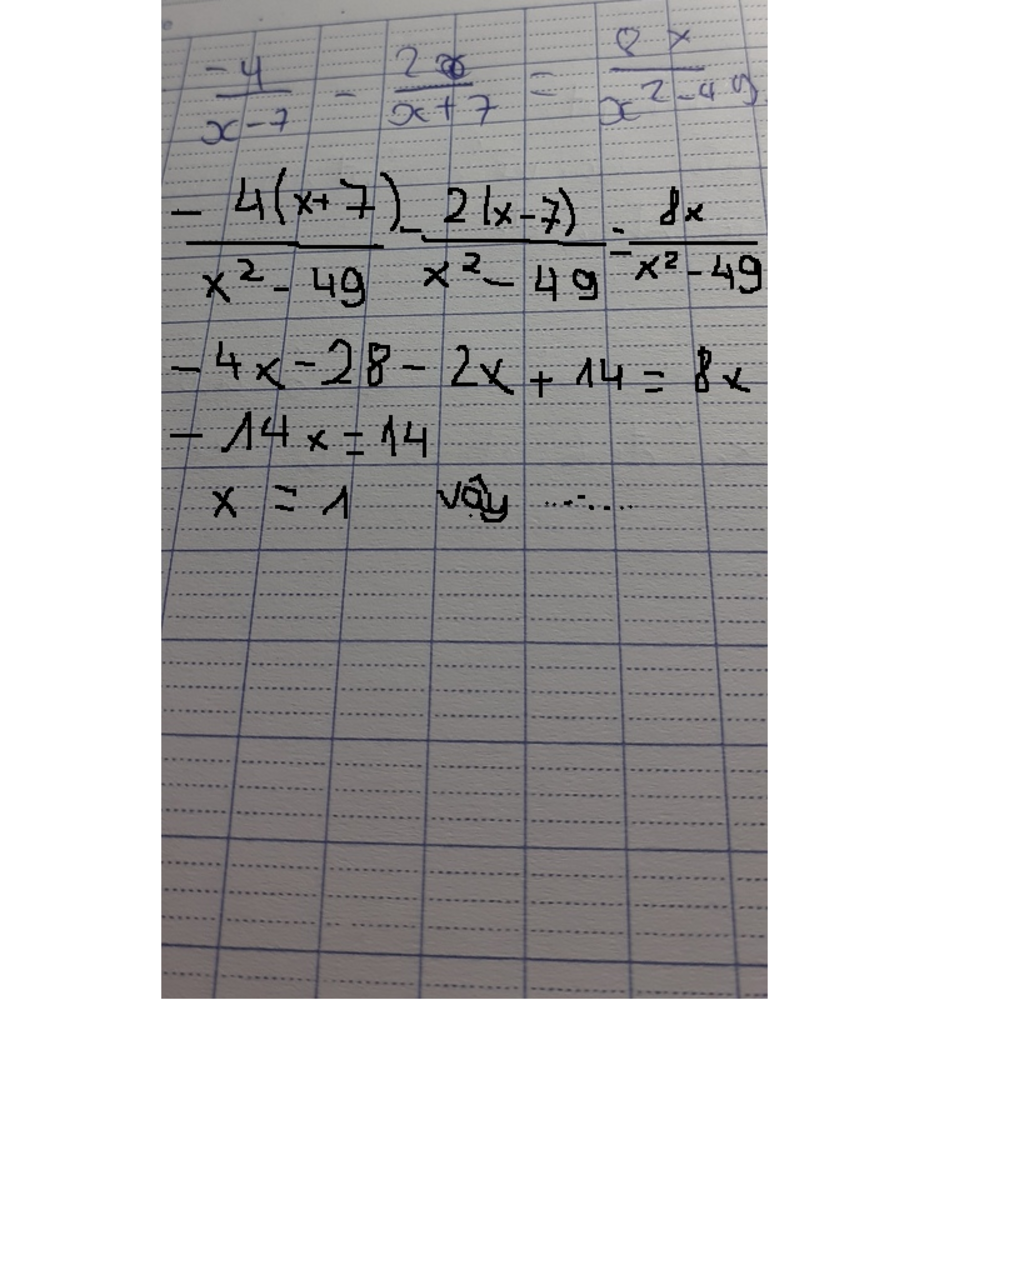 -4/(x-7) - 2/(x+7) = 8x/(x²-49)
-4(x+7)/(x²-49) - 2(x-7)/(x²-49) = 8x/(x²-49)
-4x-28-2x+14=8x
-14x=14
x=1 vậy .......